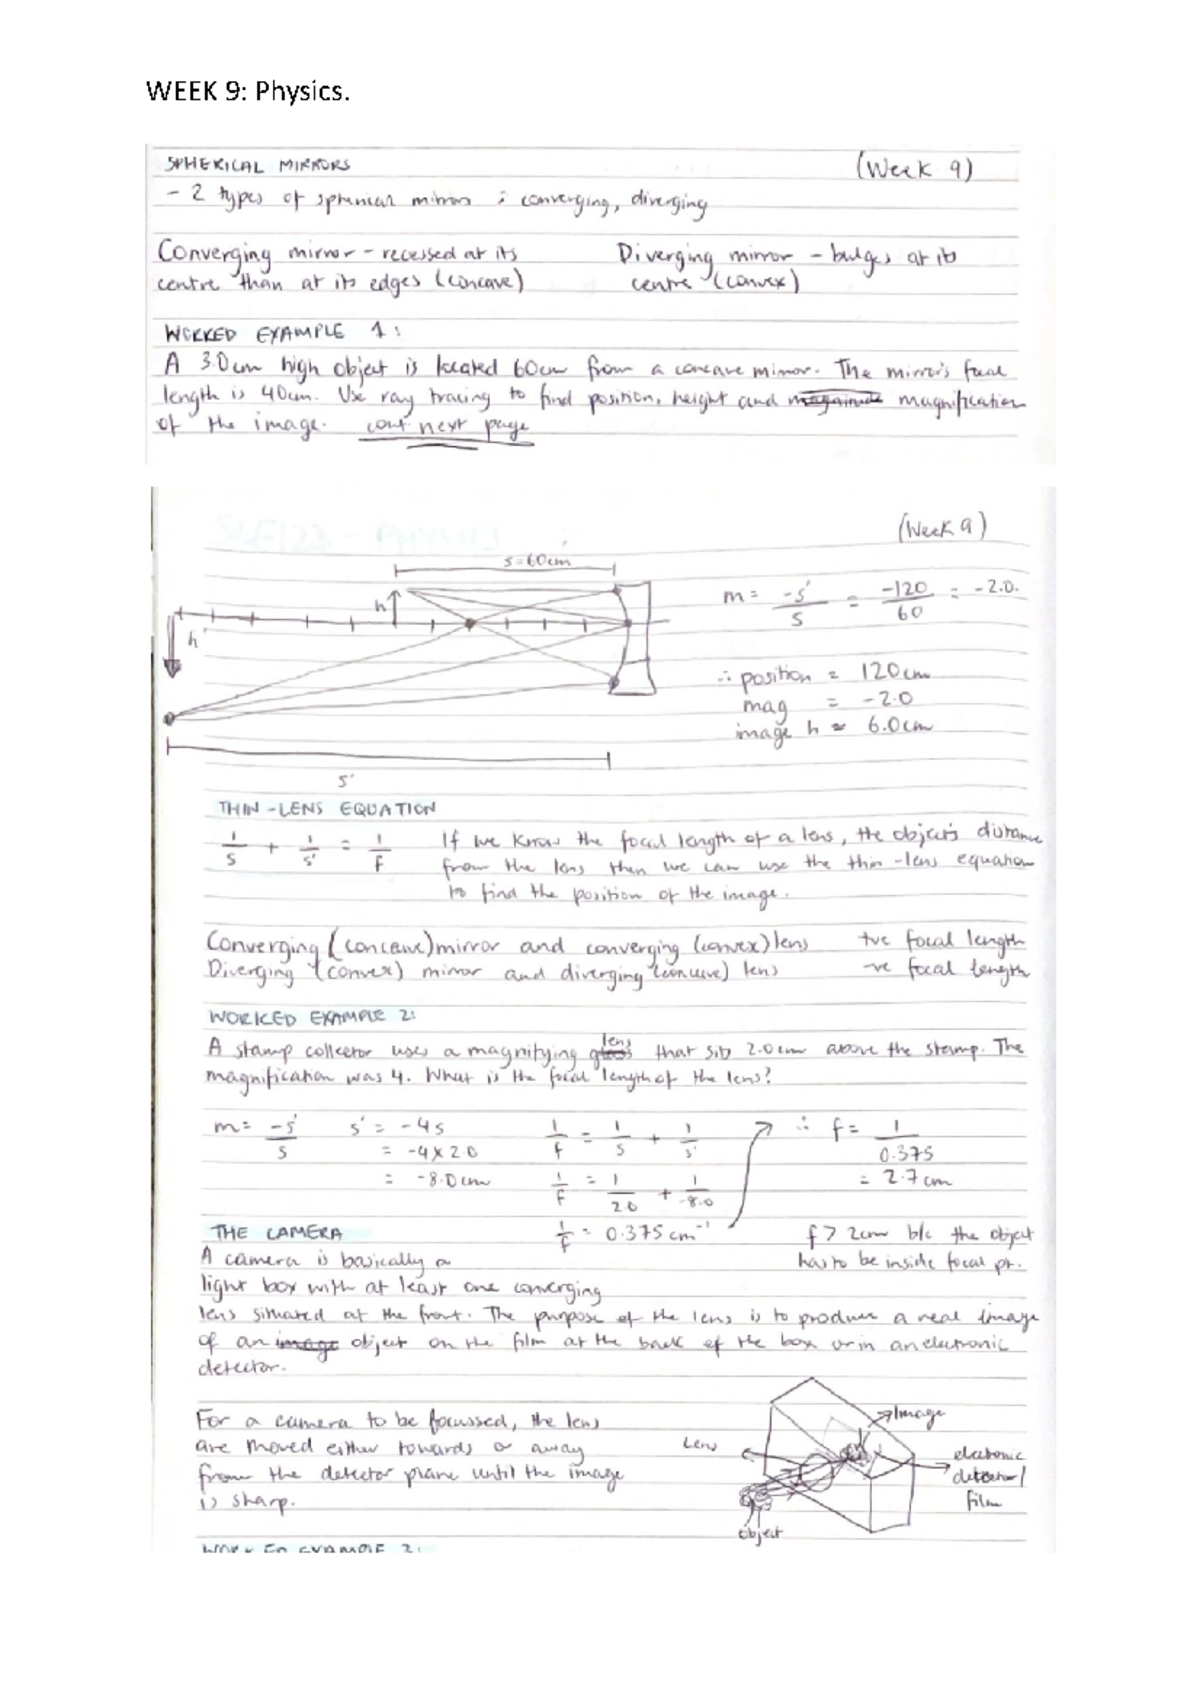 WEEK 9: Physics.
SPHERICAL MIRRORS (Week 9)
- 2 types of spherical mirrors : converging, diverging
Converging mirror - recessed at its Diverging mirror - bulges at its
centre than at its edges (concave) centre (convex)
WORKED EXAMPLE 1:
A 3.0cm high object is located 60cm from a concave mirror. The mirror's focal
length is 40cm. Use ray tracing to find position, height and magnitude magnification
of the image. cont next page
(Week 9)
s = 60cm
h
h'
m = -s'/s = -120/60 = -2.0.
∴ position = 120cm
mag = -2.0
image h = 6.0cm
s'
THIN-LENS EQUATION
1/s + 1/s' = 1/f If we know the focal length of a lens, the object's distance
from the lens then we can use the thin-lens equation
to find the position of the image.
Converging (concave) mirror and converging (convex) lens +ve focal length
Diverging (convex) mirror and diverging (concave) lens -ve focal length
WORKED EXAMPLE 2:
A stamp collector uses a magnifying glass lens that sits 2.0cm above the stamp. The
magnification was 4. What is the focal length of the lens?
m = -s'/s s' = -4s 1/f = 1/s + 1/s' ∴ f = 1/0.375
= -4 x 2.0
= -8.0cm 1/f = 1/2.0 + 1/-8.0 = 2.7cm
THE CAMERA 1/f = 0.375 cm⁻¹ f > 2cm b/c the object
A camera is basically a has to be inside focal pt.
light box with at least one converging
lens situated at the front. The purpose of the lens is to produce a real image
of an image object on the film at the back of the box or in an electronic
detector.
For a camera to be focussed, the lens
are moved either towards or away
from the detector plane until the image
is sharp.
Image
Lens
electronic
detector/
film
object
WORKED EXAMPLE 3: